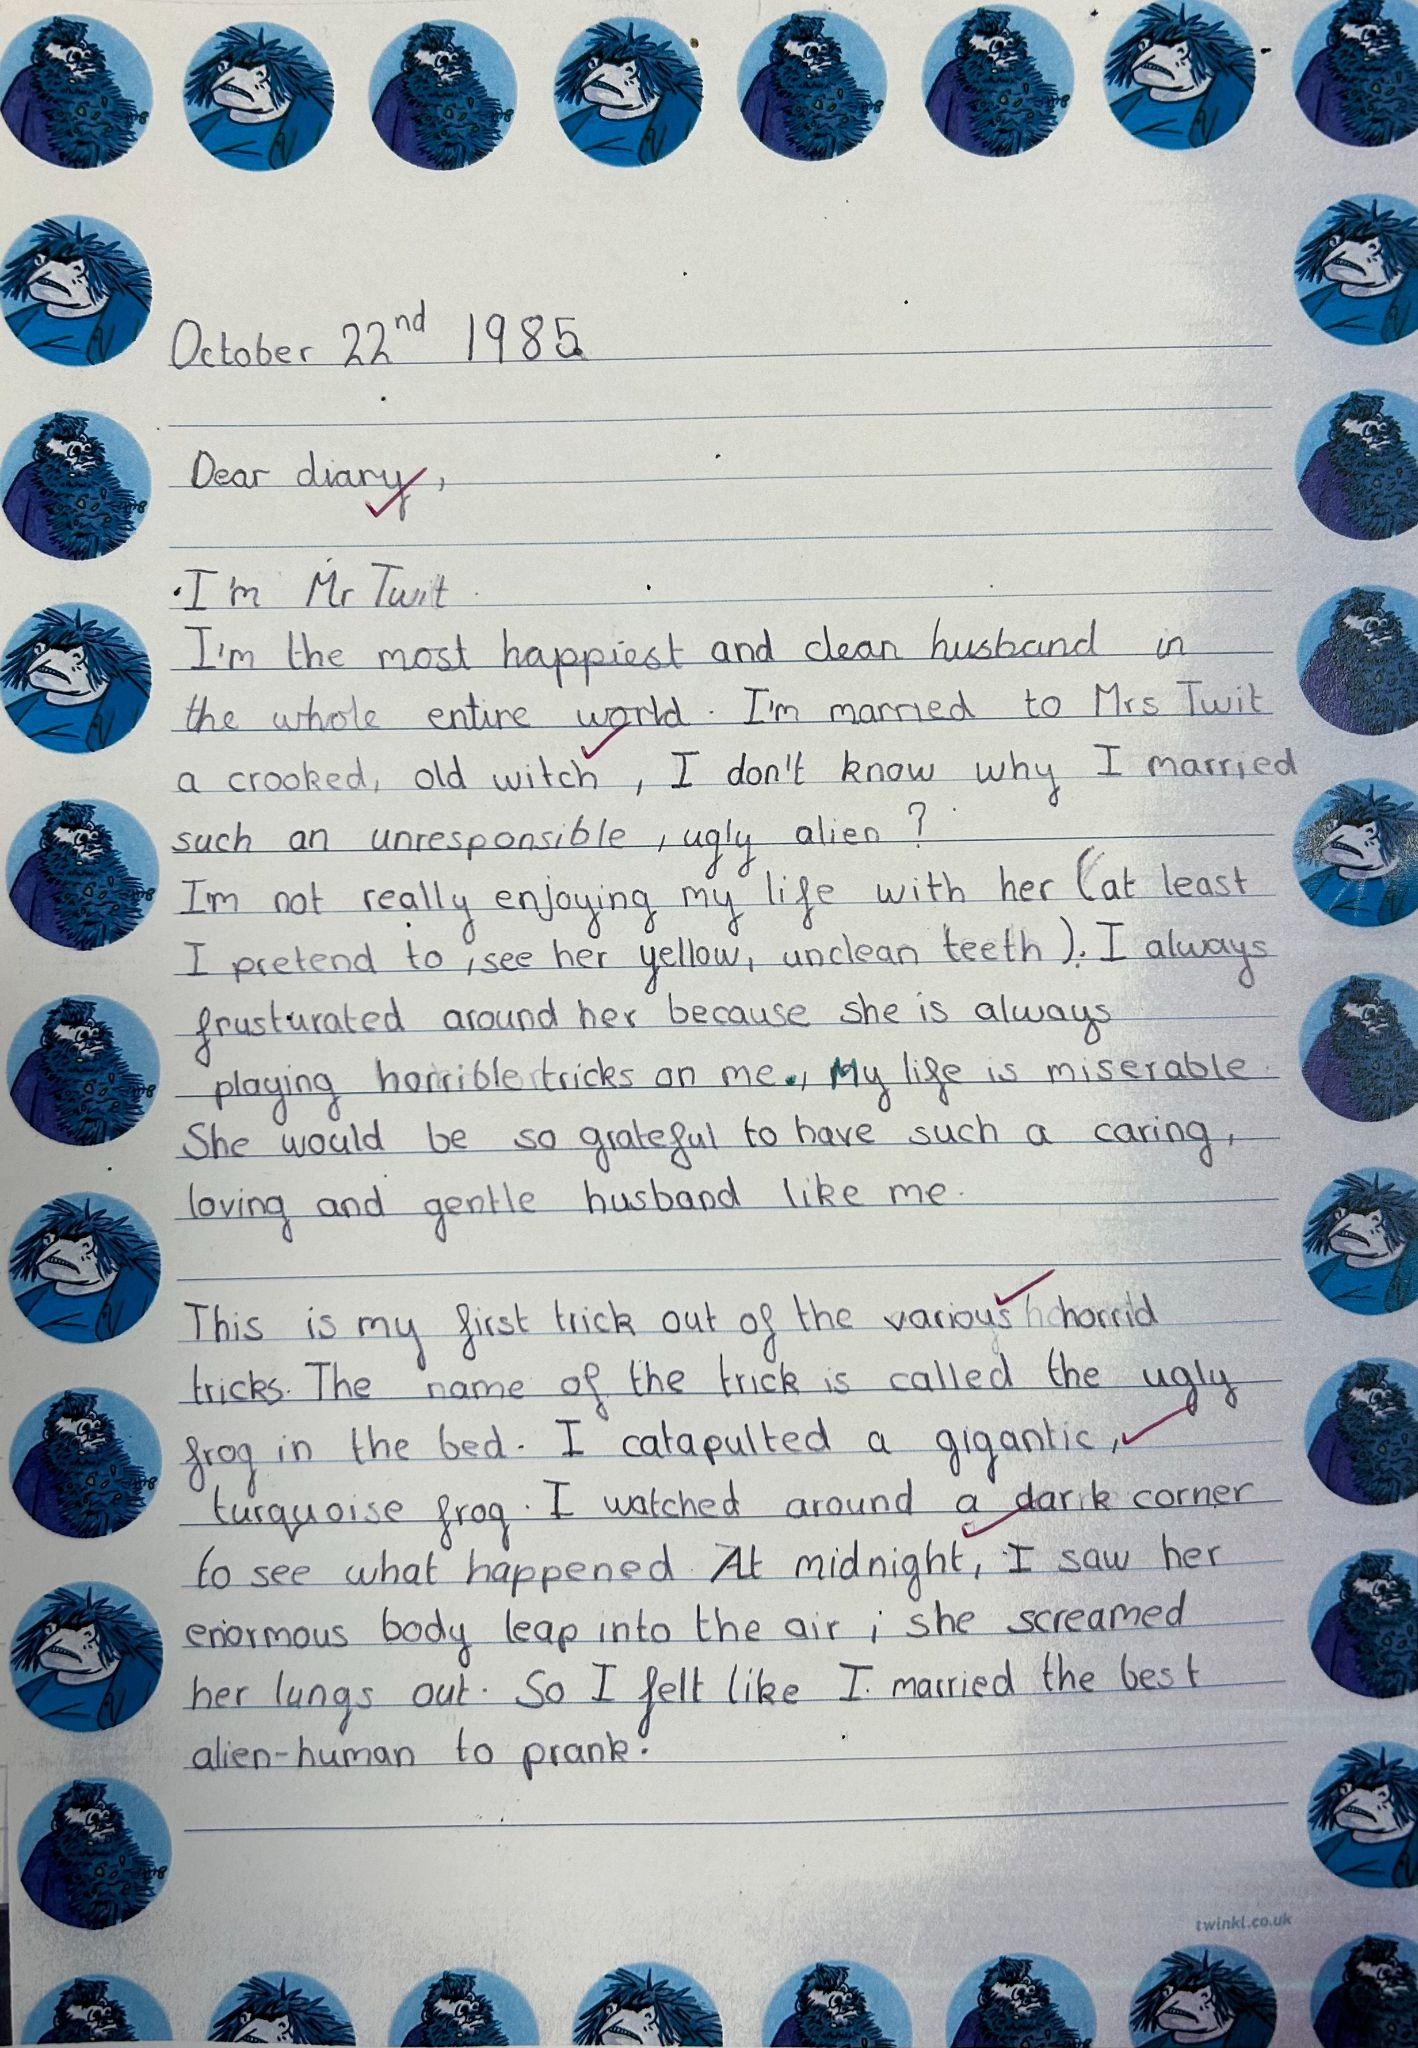 October 22nd 1985
Dear diary,
I'm Mr Twit
I'm the most happiest and clean husband in
the whole entire world. I'm married to Mrs Twit
a crooked, old witch, I don't know why I married
such an unresponsible, ugly alien?
I'm not really enjoying my life with her (at least
I pretend to, see her yellow, unclean teeth). I always
frusturated around her because she is always
playing horrible tricks on me., My life is miserable.
She would be so grateful to have such a caring,
loving and gentle husband like me.
This is my first trick out of the various horrid
tricks. The name of the trick is called the ugly
frog in the bed. I catapulted a gigantic,
turquoise frog. I watched around a dark corner
to see what happened. At midnight, I saw her
enormous body leap into the air; she screamed
her lungs out. So I felt like I married the best
alien-human to prank.
twinkl.co.uk